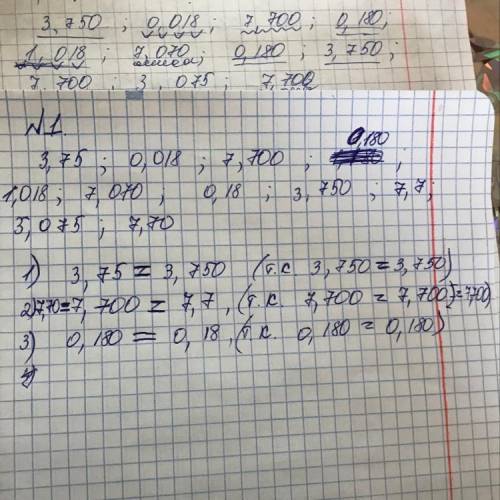 3,750 ; 0,018 ; 7,700 ; 0,180 ;
1,018 ; 7,070 ; 0,180 ; 3,750 ;
7,700 , 3,075 , 7,700
№1.
3,75 ; 0,018 ; 7,700 ; 0,180 ;
1,018 ; 7,070 , 0,18 ; 3,750 ; 7,7 ;
3,075 ; 7,70
1) 3,75 = 3,750 (т.к. 3,750 = 3,750)
2) 7,70 = 7,700 = 7,7 , (т.к. 7,700 = 7,700) = 7,700)
3) 0,180 = 0,18 , (т.к. 0,180 = 0,180)